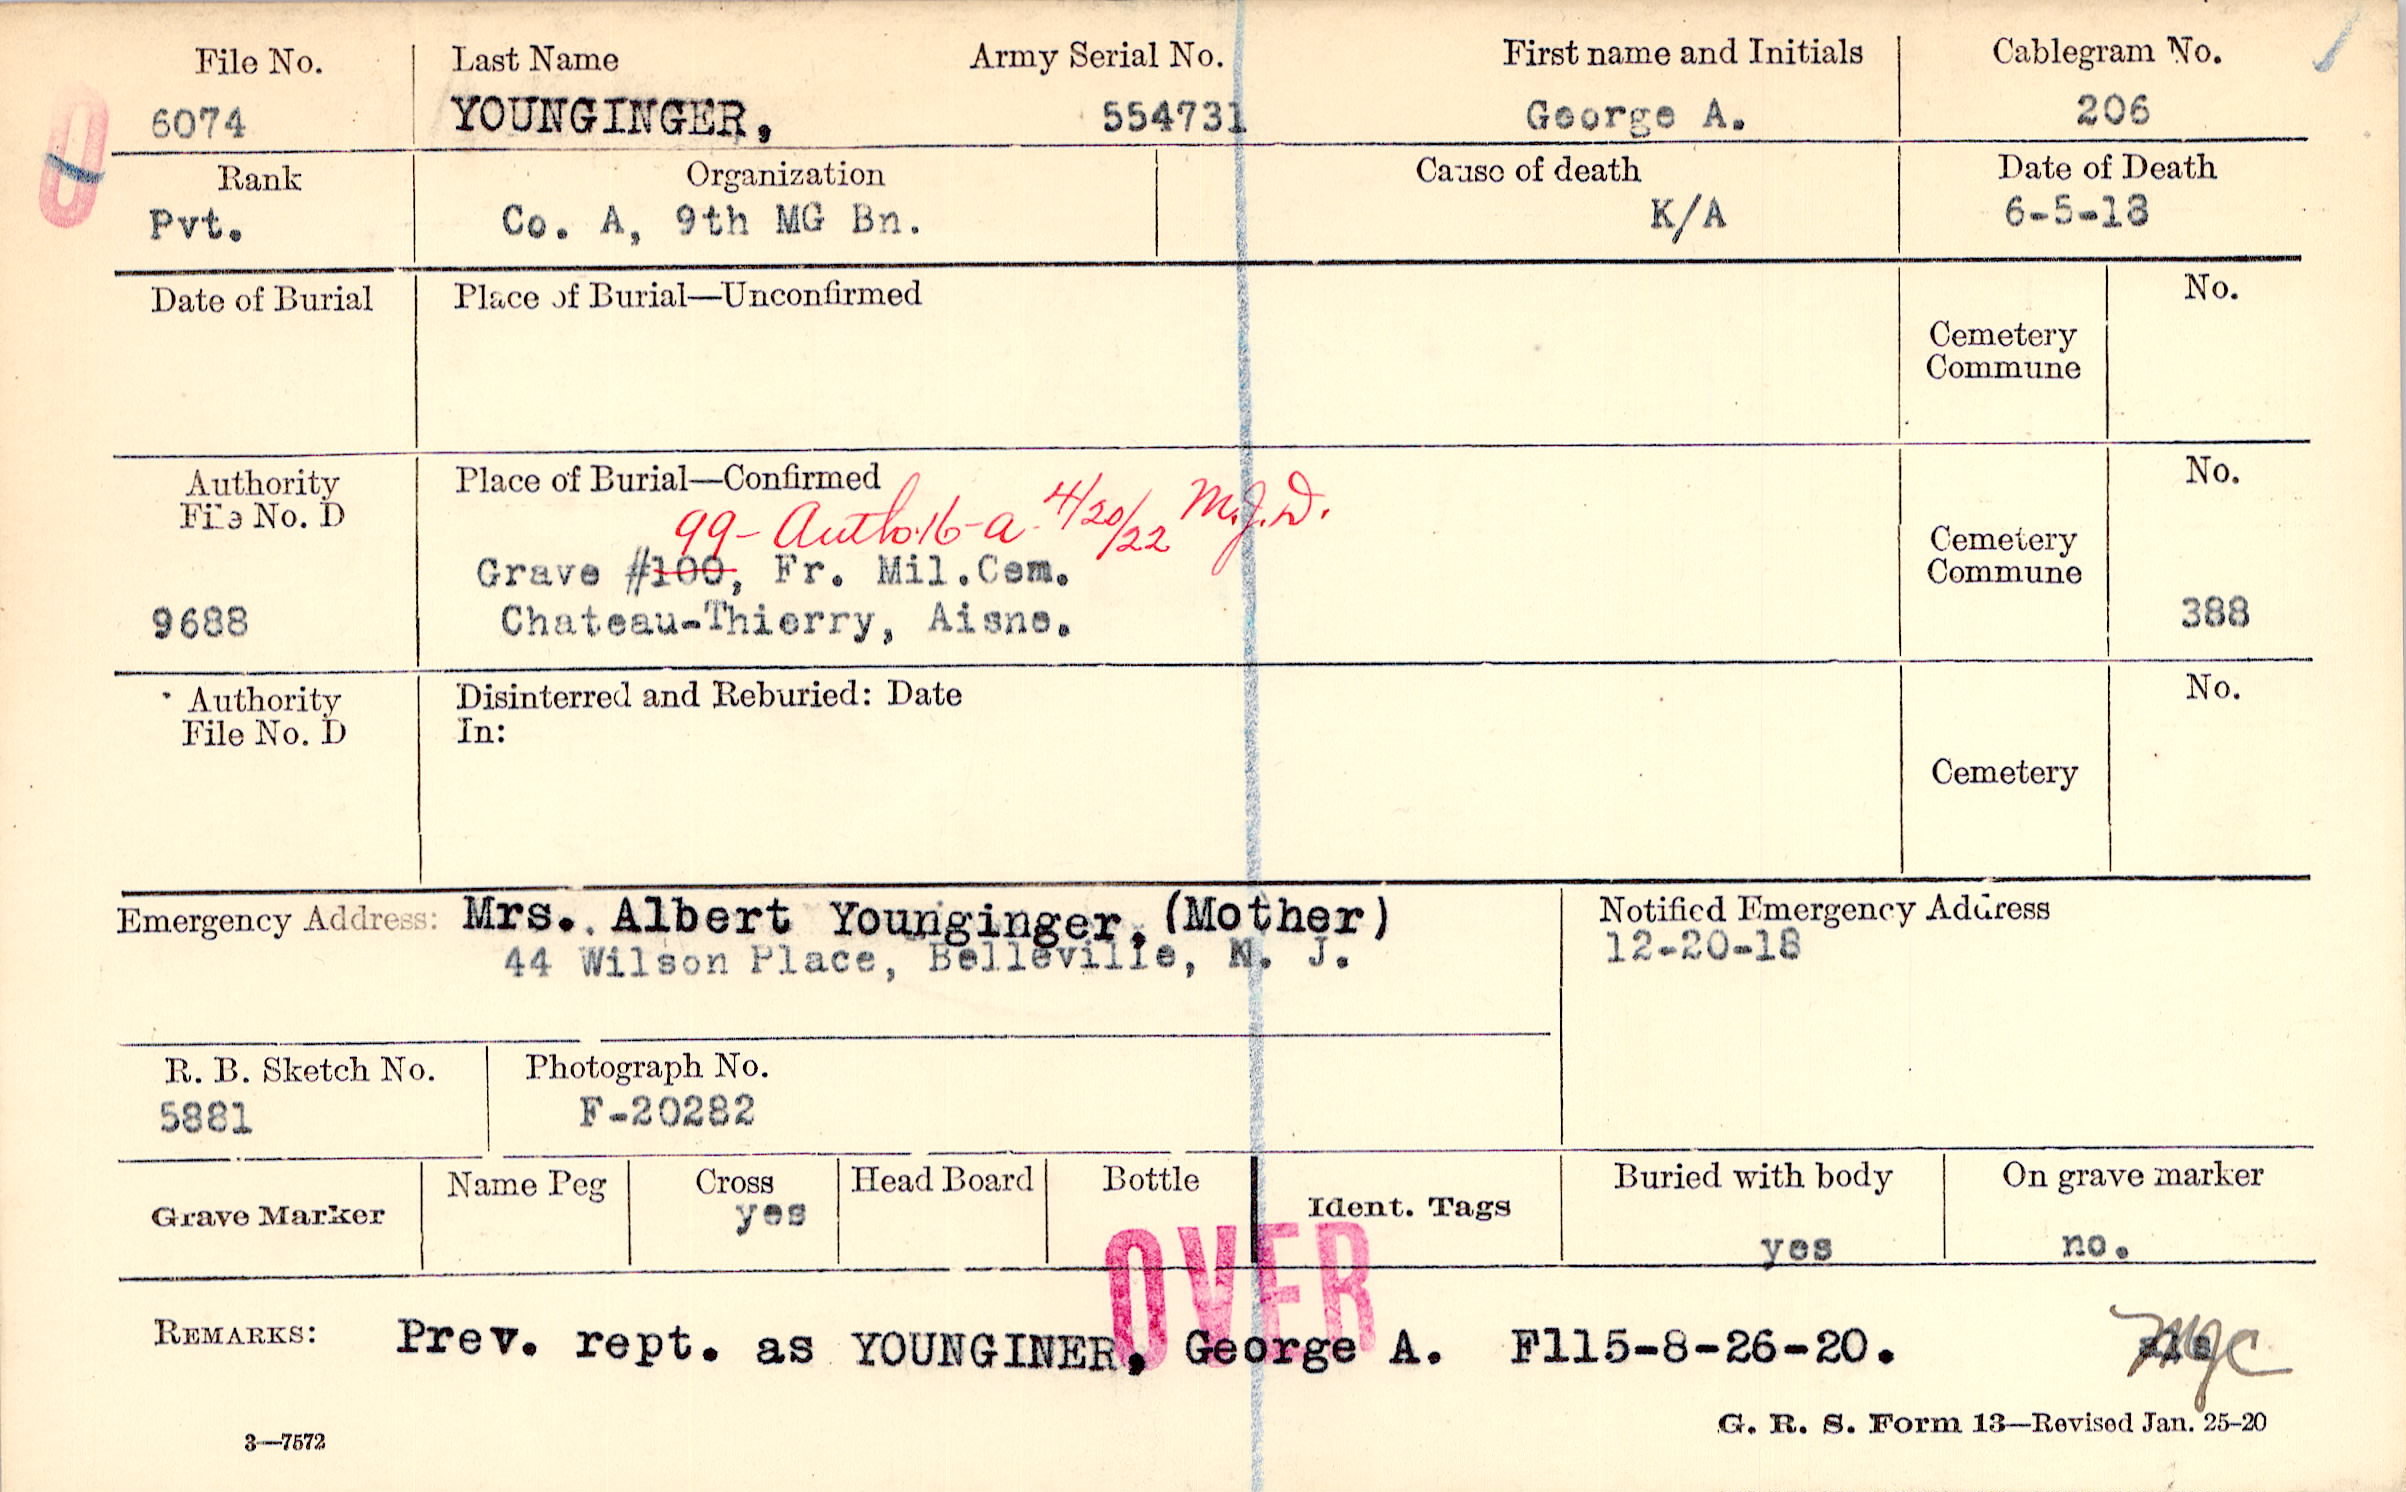 File No. Last Name Army Serial No. First name and Initials Cablegram No.
6074 YOUNGINGER, 554731 George A. 206
Rank Organization Cause of death Date of Death
Pvt. Co. A, 9th MG Bn. K/A 6-5-18
Date of Burial Place of Burial—Unconfirmed No.
Cemetery
Commune
Authority Place of Burial—Confirmed No.
File No. D
99- Autho.16-a- 4/20/22 M.J.D.
Grave #100, Fr. Mil.Cem. Cemetery
Commune
9688 Chateau-Thierry, Aisne. 388
Authority Disinterred and Reburied: Date No.
File No. D In:
Cemetery
Emergency Address: Mrs. Albert Younginger, (Mother) Notified Emergency Address
44 Wilson Place, Belleville, N. J. 12-20-18
R. B. Sketch No. Photograph No.
5881 F-20282
Grave Marker Name Peg Cross Head Board Bottle Ident. Tags Buried with body On grave marker
yes yes no.
OVER
REMARKS: Prev. rept. as YOUNGINER, George A. F115-8-26-20.
3—7572 G. R. S. Form 13—Revised Jan. 25-20